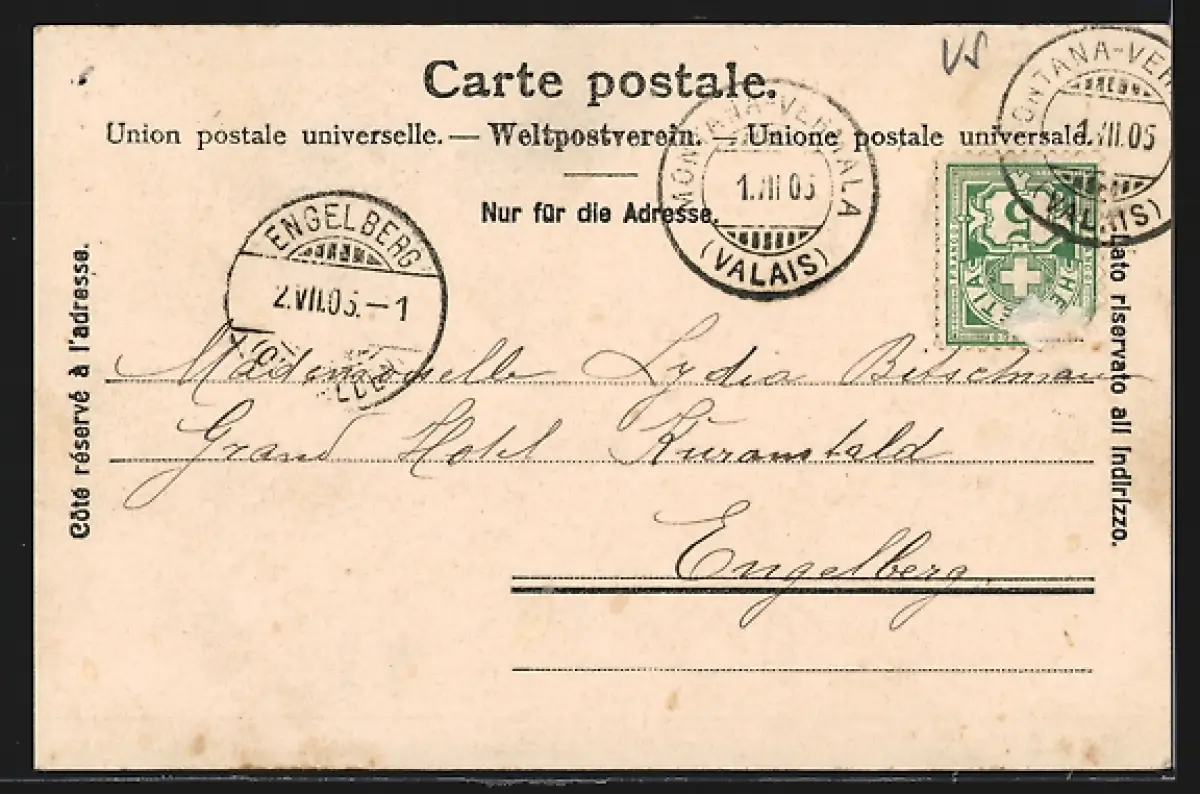 VS
Carte postale.
Union postale universelle. — Weltpostverein. — Unione postale universale.
Nur für die Adresse.
MONTANA-VERMALA
1.VII.05
(VALAIS)
MONTANA-VER
1.VII.05
(VALAIS)
ENGELBERG
2.VII.05.-1
5
FRANCO
HE TIA
Côté réservé à l'adresse.
lato riservato all indirizzo.
Mademoiselle Lydia Bitschmann
Grand Hotel Kuranstald
Engelberg.